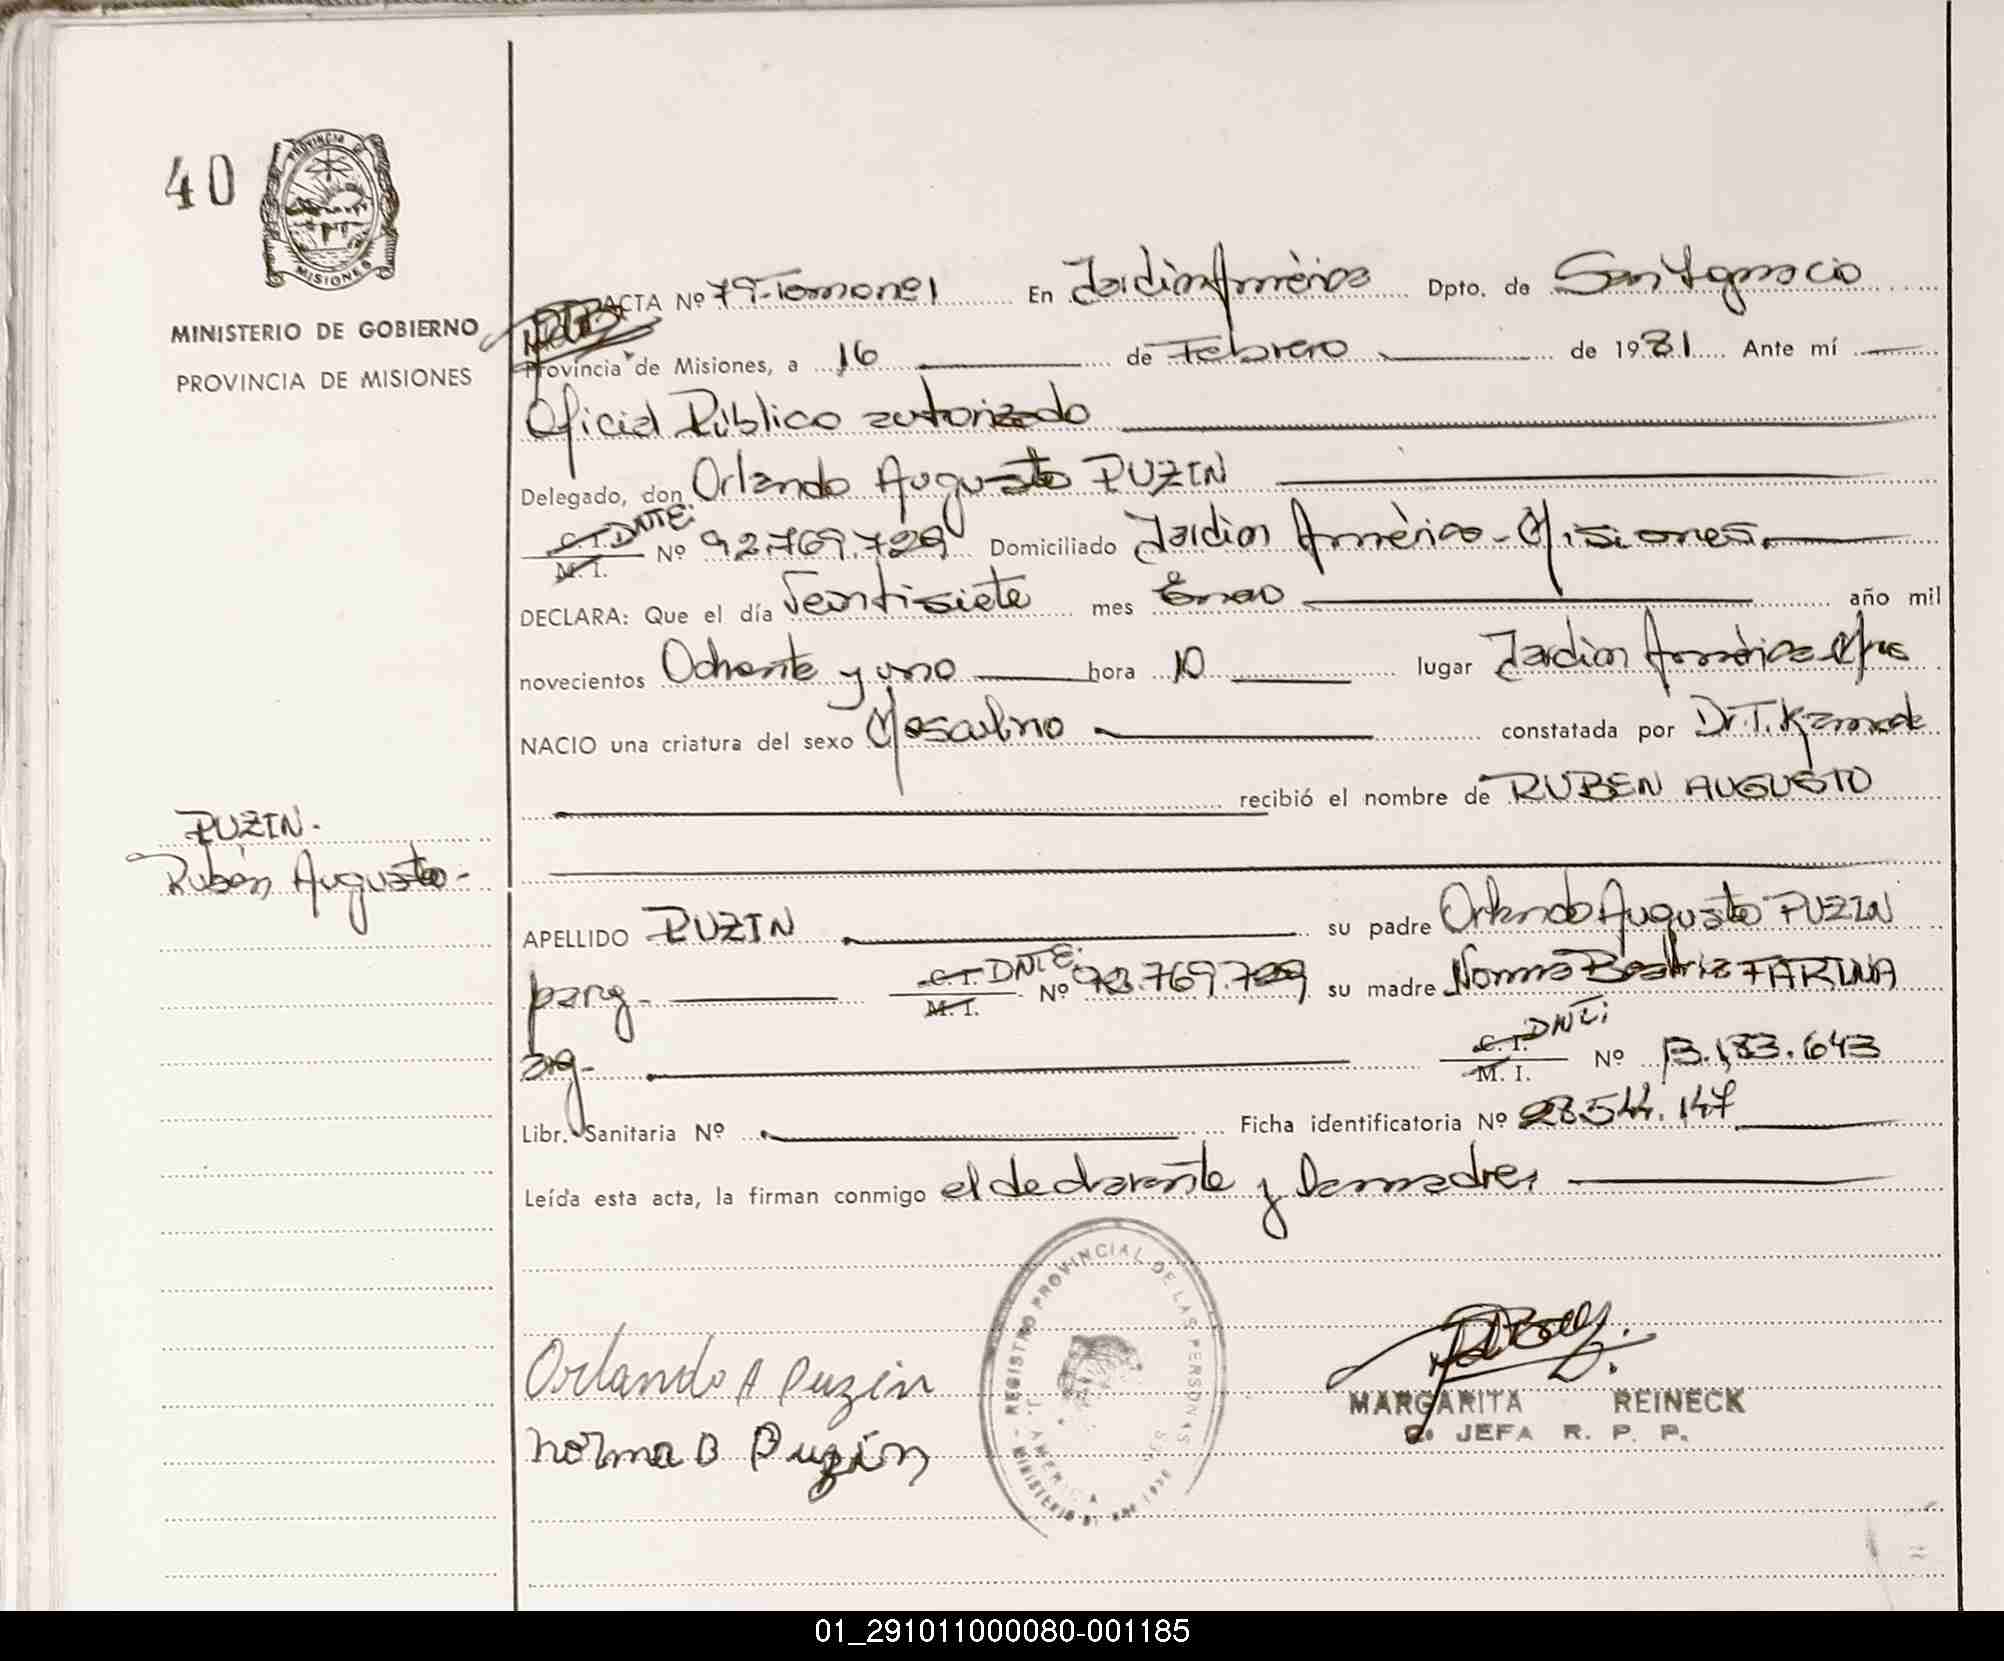 40
PROVINCIA DE
MISIONES
MINISTERIO DE GOBIERNO
PROVINCIA DE MISIONES
ACTA Nº 79-Tomo nº1 En Jardín América Dpto. de San Ignacio
Provincia de Misiones, a 16 de Febrero de 1981 Ante mí
Oficial Público autorizado
Delegado, don Orlando Augusto PUZIN
C. I. DNIE. M. I. Nº 92.769.729 Domiciliado Jardín América - Misiones.
DECLARA: Que el día Veintisiete mes Enero año mil
novecientos Ochenta y uno hora 10 lugar Jardín América Mnes
NACIO una criatura del sexo Masculino constatada por Dr. T. Kamada
recibió el nombre de RUBEN AUGUSTO
PUZIN.
Rubén Augusto-
APELLIDO PUZIN su padre Orlando Augusto PUZIN
parg- C. I. DNIE. M. I. Nº 92.769.729 su madre Norma Beatriz FARINA
arg- C. I. DNI: M. I. Nº 13.183.643
Libr. Sanitaria Nº Ficha identificatoria Nº 28.544.147
Leída esta acta, la firman conmigo el declarante y la madre,
REGISTRO PROVINCIAL DE LAS PERSONAS
J. AMERICA
MINISTERIO
Orlando A Puzin
Norma B Puzin
MARGARITA REINECK
JEFA R. P. P.
01_291011000080-001185